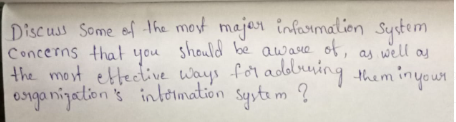 Discuss Some of the most major information System
Concerns that you should be aware of, as well as
the most effective ways for addrusing them in your
organization's information System ?